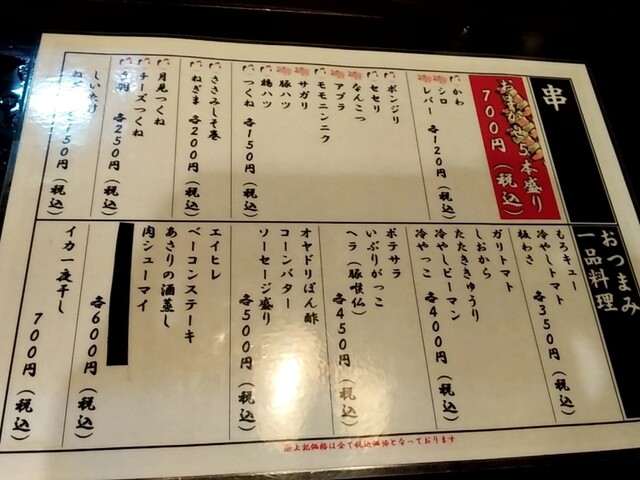 串
おまかせ5本盛り
700円(税込)
かわ
シロ
レバー
各120円(税込)
ボンジリ
セセリ
なんこつ
アブラ
モモニンニク
サガリ
豚ハツ
鶏ハツ
つくね
各150円(税込)
ささみしそ巻
ねぎま
各200円(税込)
月見つくね
チーズつくね
手羽
各250円(税込)
しいたけ
150円(税込)
おつまみ
一品料理
もろキュー
冷やしトマト
板わさ
各350円(税込)
ガリトマト
しおから
たたききゅうり
冷やしピーマン
冷やっこ
各400円(税込)
ポテサラ
いぶりがっこ
ヘラ(豚喉仏)
各450円(税込)
オヤドリぽん酢
コーンバター
ソーセージ盛り
各500円(税込)
エイヒレ
ベーコンステーキ
あさりの酒蒸し
肉シューマイ
各600円(税込)
イカ一夜干し
700円(税込)
※上記価格は全て税込価格となっております